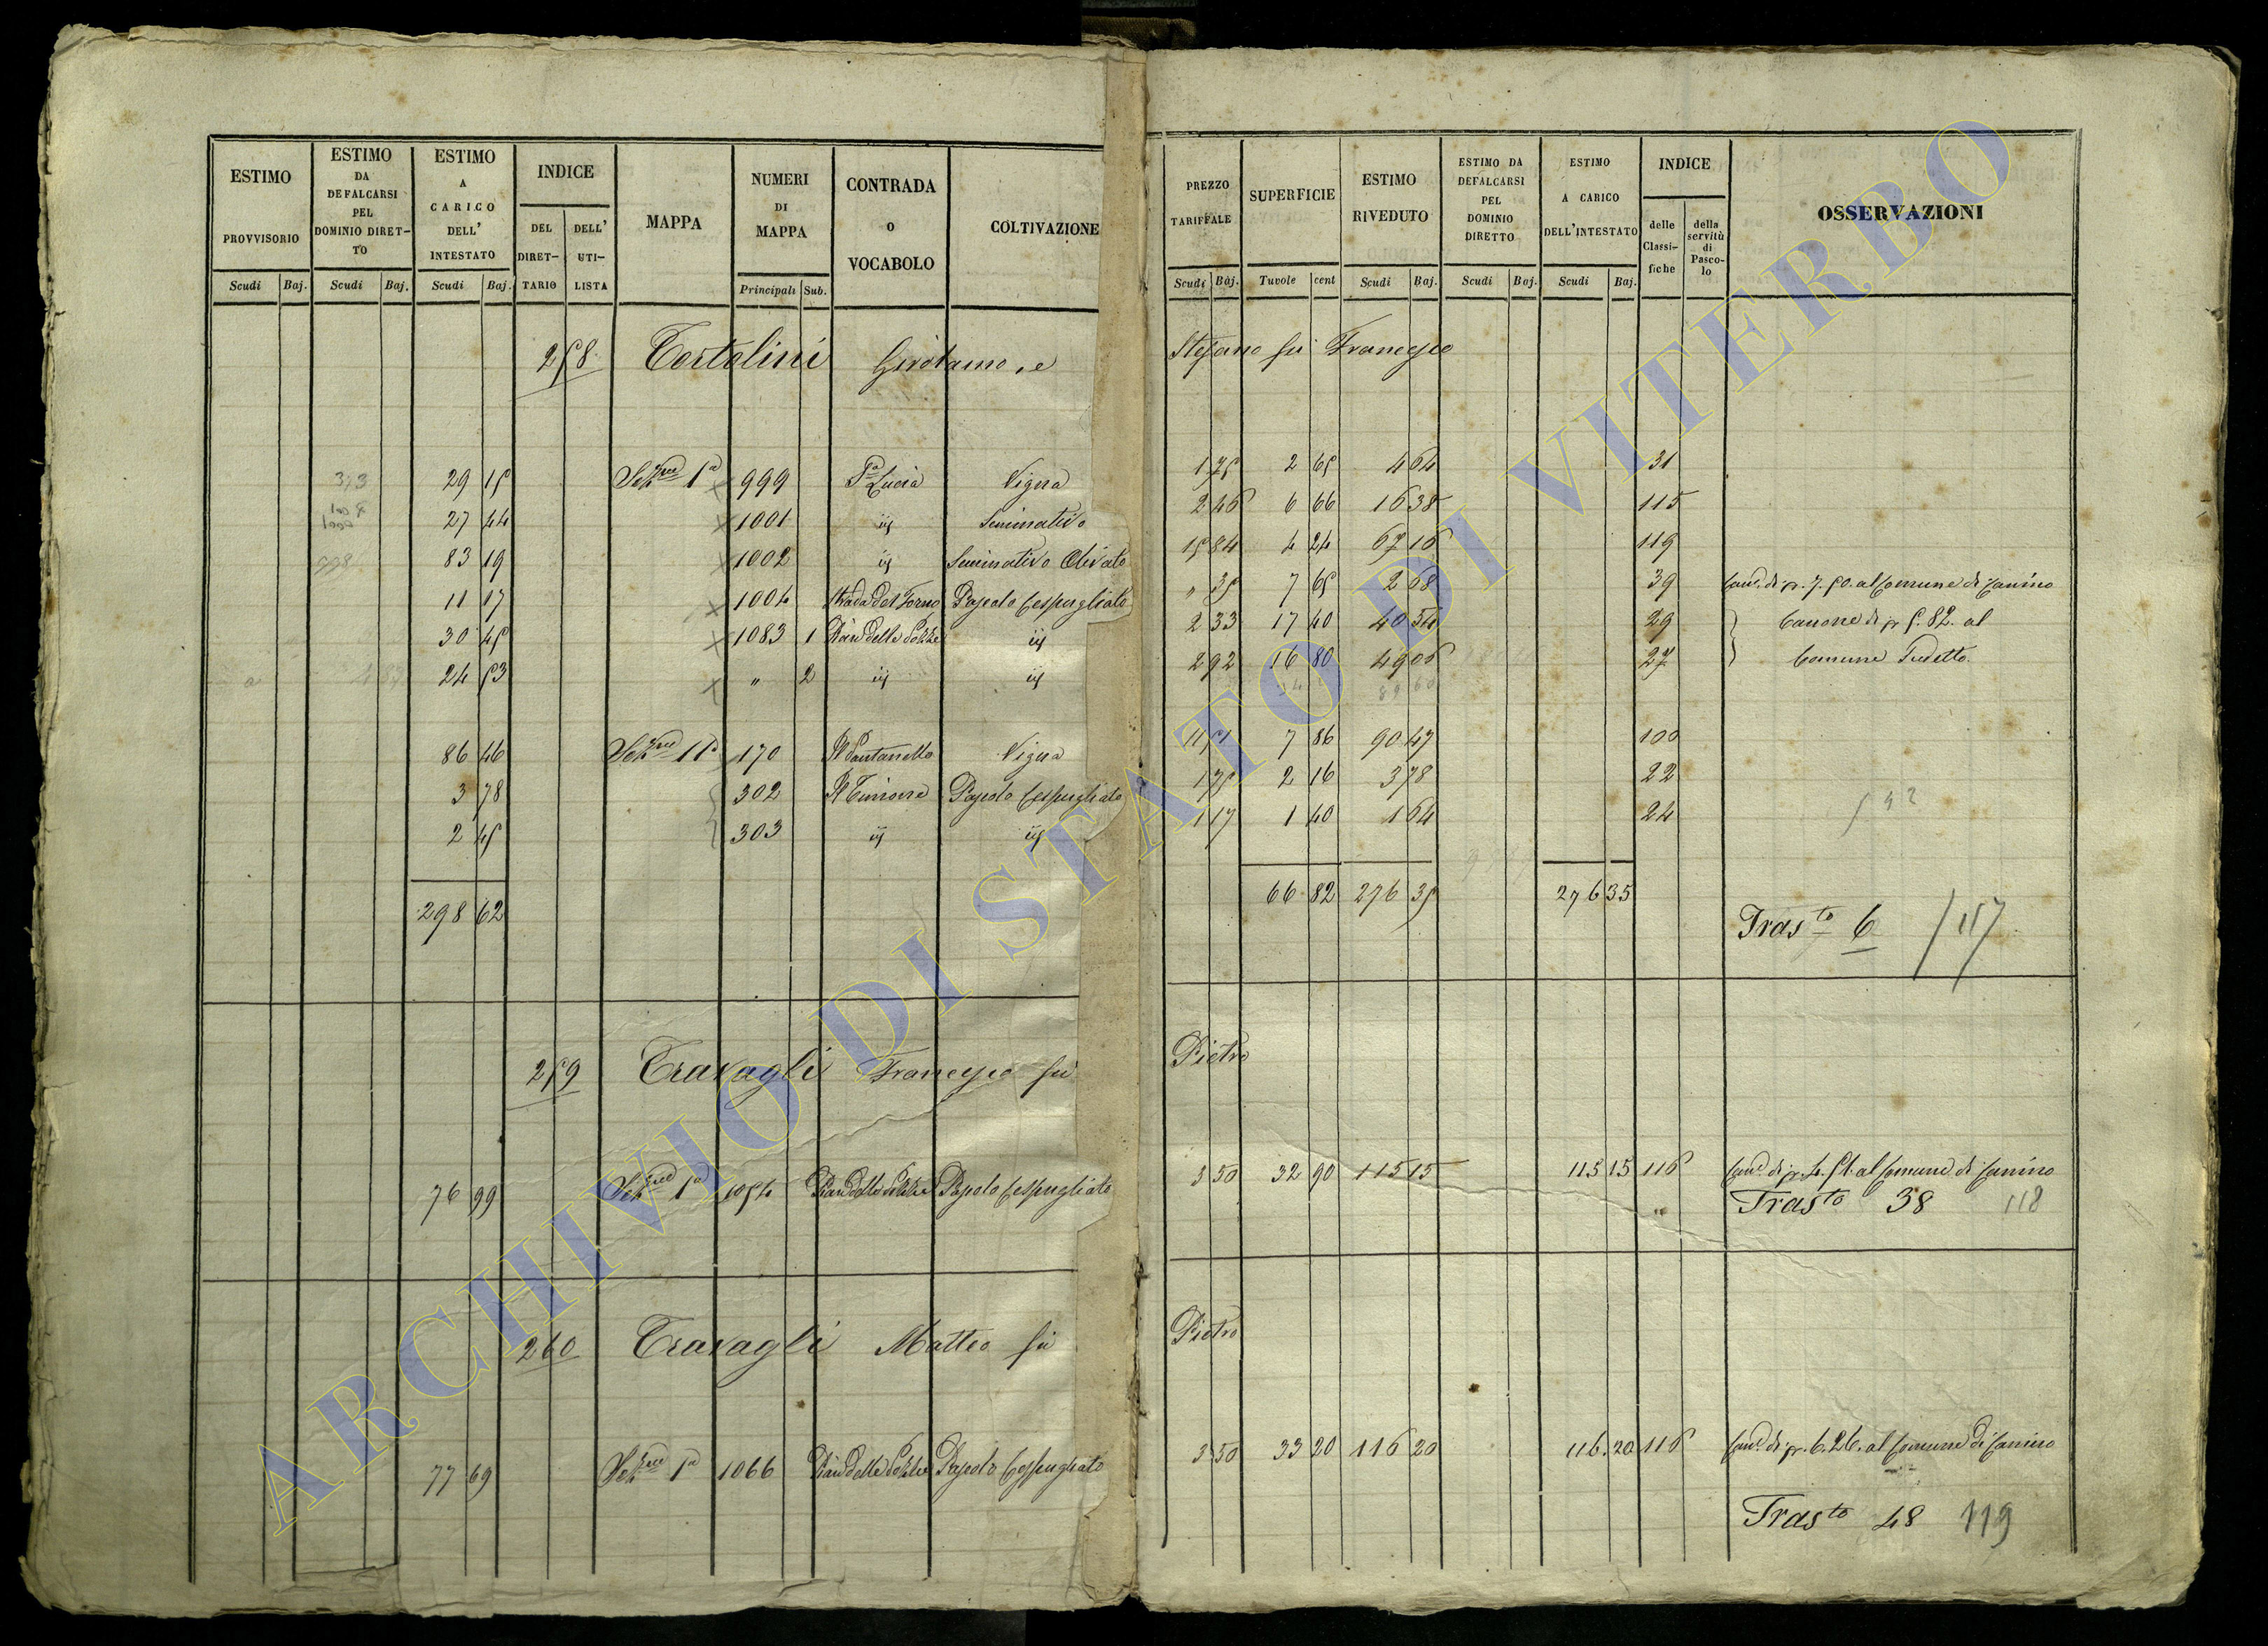 ESTIMO PROVVISORIO Scudi Baj.
ESTIMO DA DEFALCARSI PEL DOMINIO DIRETTO Scudi Baj.
ESTIMO A CARICO DELL' INTESTATO Scudi Baj.
INDICE DEL DIRET-TARIO DELL' UTI-LISTA
MAPPA
NUMERI DI MAPPA Principali Sub.
CONTRADA O VOCABOLO
COLTIVAZIONE
PREZZO TARIFFALE Scudi Baj.
SUPERFICIE Tuvole cent
ESTIMO RIVEDUTO Scudi Baj.
ESTIMO DA DEFALCARSI PEL DOMINIO DIRETTO Scudi Baj.
ESTIMO A CARICO DELL'INTESTATO Scudi Baj.
INDICE delle Classi-fiche della servitù di Pasco-lo
OSSERVAZIONI
258 Tortolini Girolamo, e Stefano fu Francesco
29 15 Sez.ne 1a 999 Sa Lucia Vigna 1 75 2 65 4 64 31
27 44 1001 iij Seminativo 2 46 6 66 16 38 115
83 19 1002 iij Seminativo Olivato 15 84 4 24 67 16 119
11 17 1004 Strada del Forno Pascolo Cespugliato " 35 7 65 2 68 39 Cane. di p. 7. 50. al Comune di Canino
30 45 1083 1 Pian delle Pozze iij 2 33 17 40 40 54 29 Canone di p 5. 82. al
24 53 " 2 iij iij 2 92 16 80 49 06 27 Comune Sudetto
86 46 Sez.ne 11a 170 Il Pantanello Vigna 11 51 7 86 90 47 100
3 78 302 Il Timone Pascolo Cespugliato 1 75 2 16 3 78 22
2 45 303 iij iij 1 17 1 40 1 64 24
298 62 66 82 276 35 276 35
Trasto 6 117
259 Travagli Francesco fu Pietro
76 99 Sez.ne 1a 1054 Pian delle Pozze Pascolo Cespugliato 3 50 32 90 115 15 115 15 116 Cane. di p. 4. 51. al Comune di Canino
Trasto 38 118
260 Travagli Matteo fu Pietro
77 69 Sez.ne 1a 1066 Pian delle Pozze Pascolo Cespugliato 3 50 33 20 116 20 116. 20 116 Cane. di p. 6. 26. al Comune di Canino
Trasto 48 119
ARCHIVIO DI STATO DI VITERBO